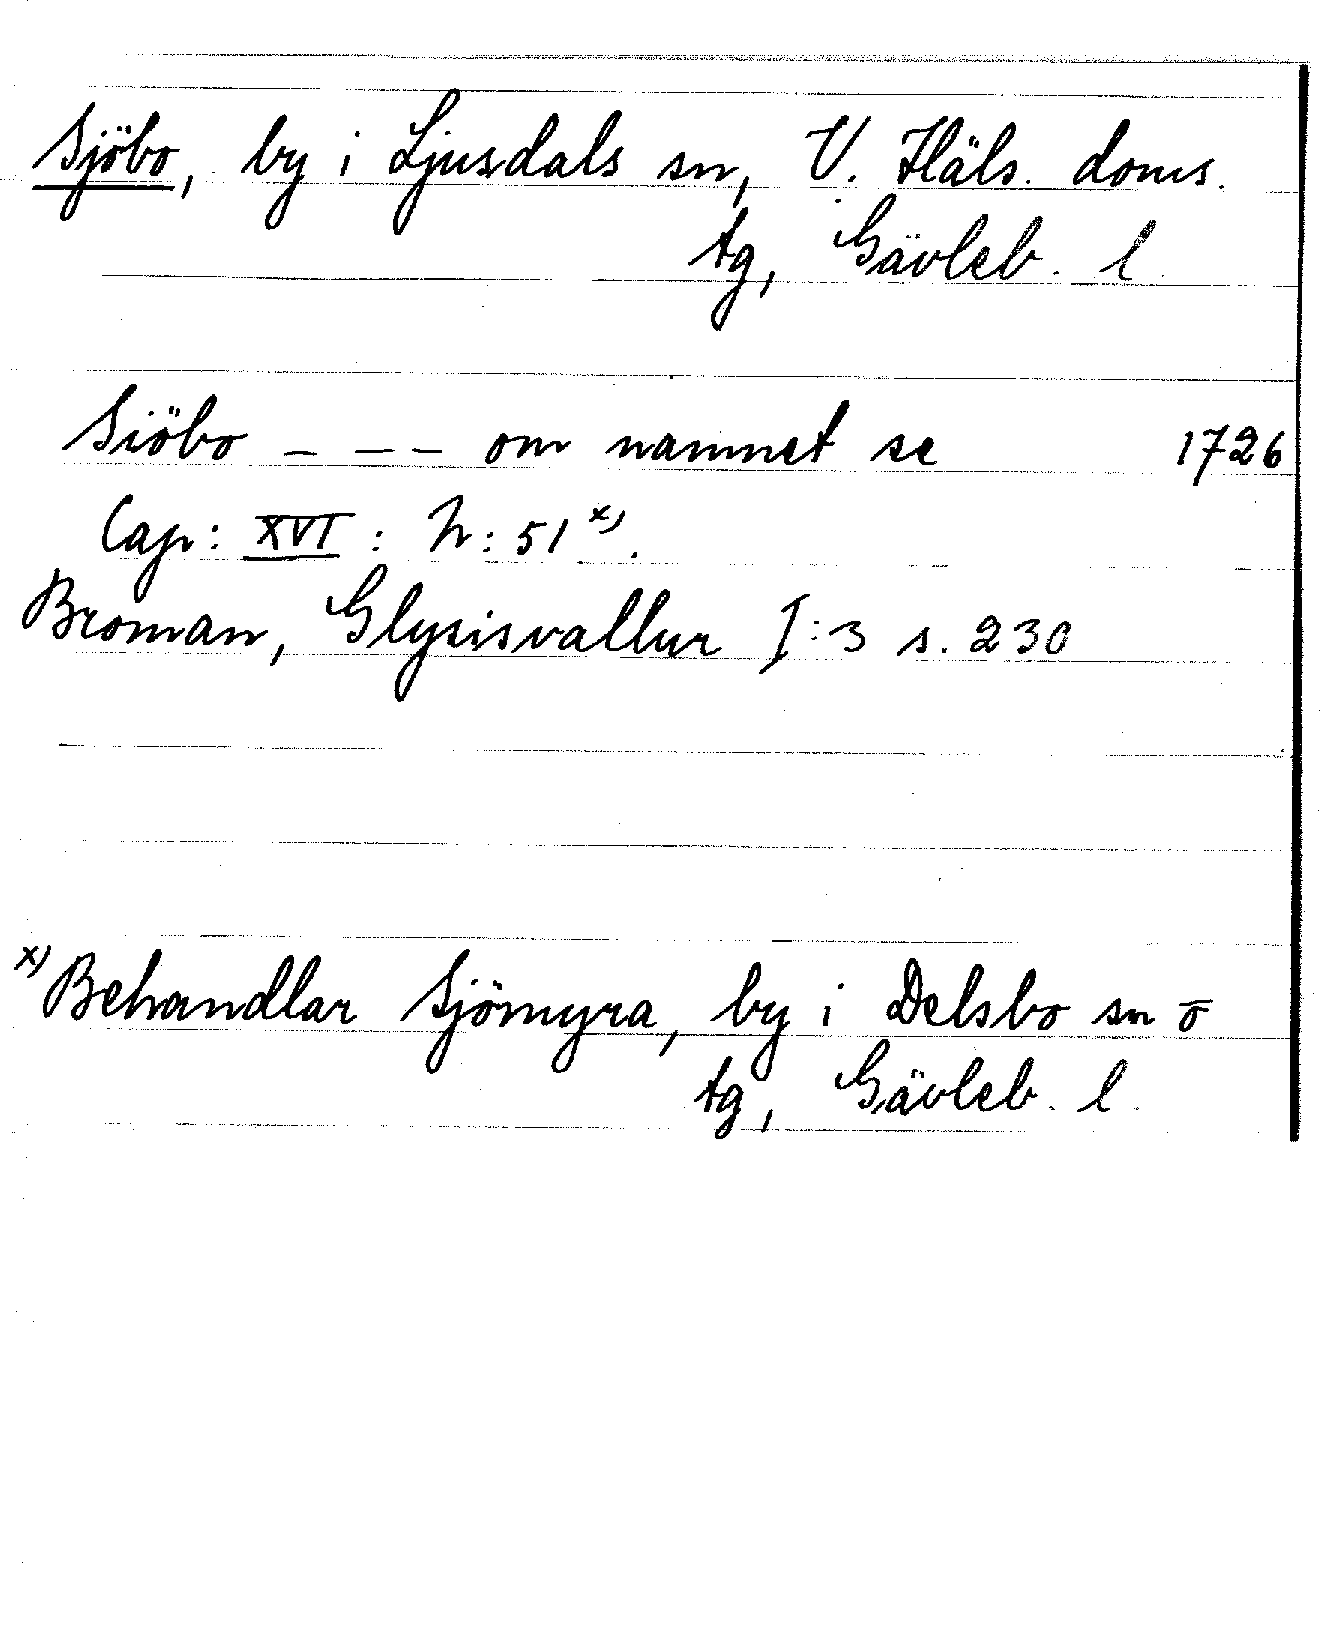 Sjöbo, by i Ljusdals sn, V. Häls. doms.
tg, Gävleb. l.
Siöbo - - - om namnet se 1726
Cap: XVI : N: 51 x).
Broman, Glysisvallur I:3 s. 230
x) Behandlar Sjömyra, by i Delsbo sn o
tg, Gävleb. l.